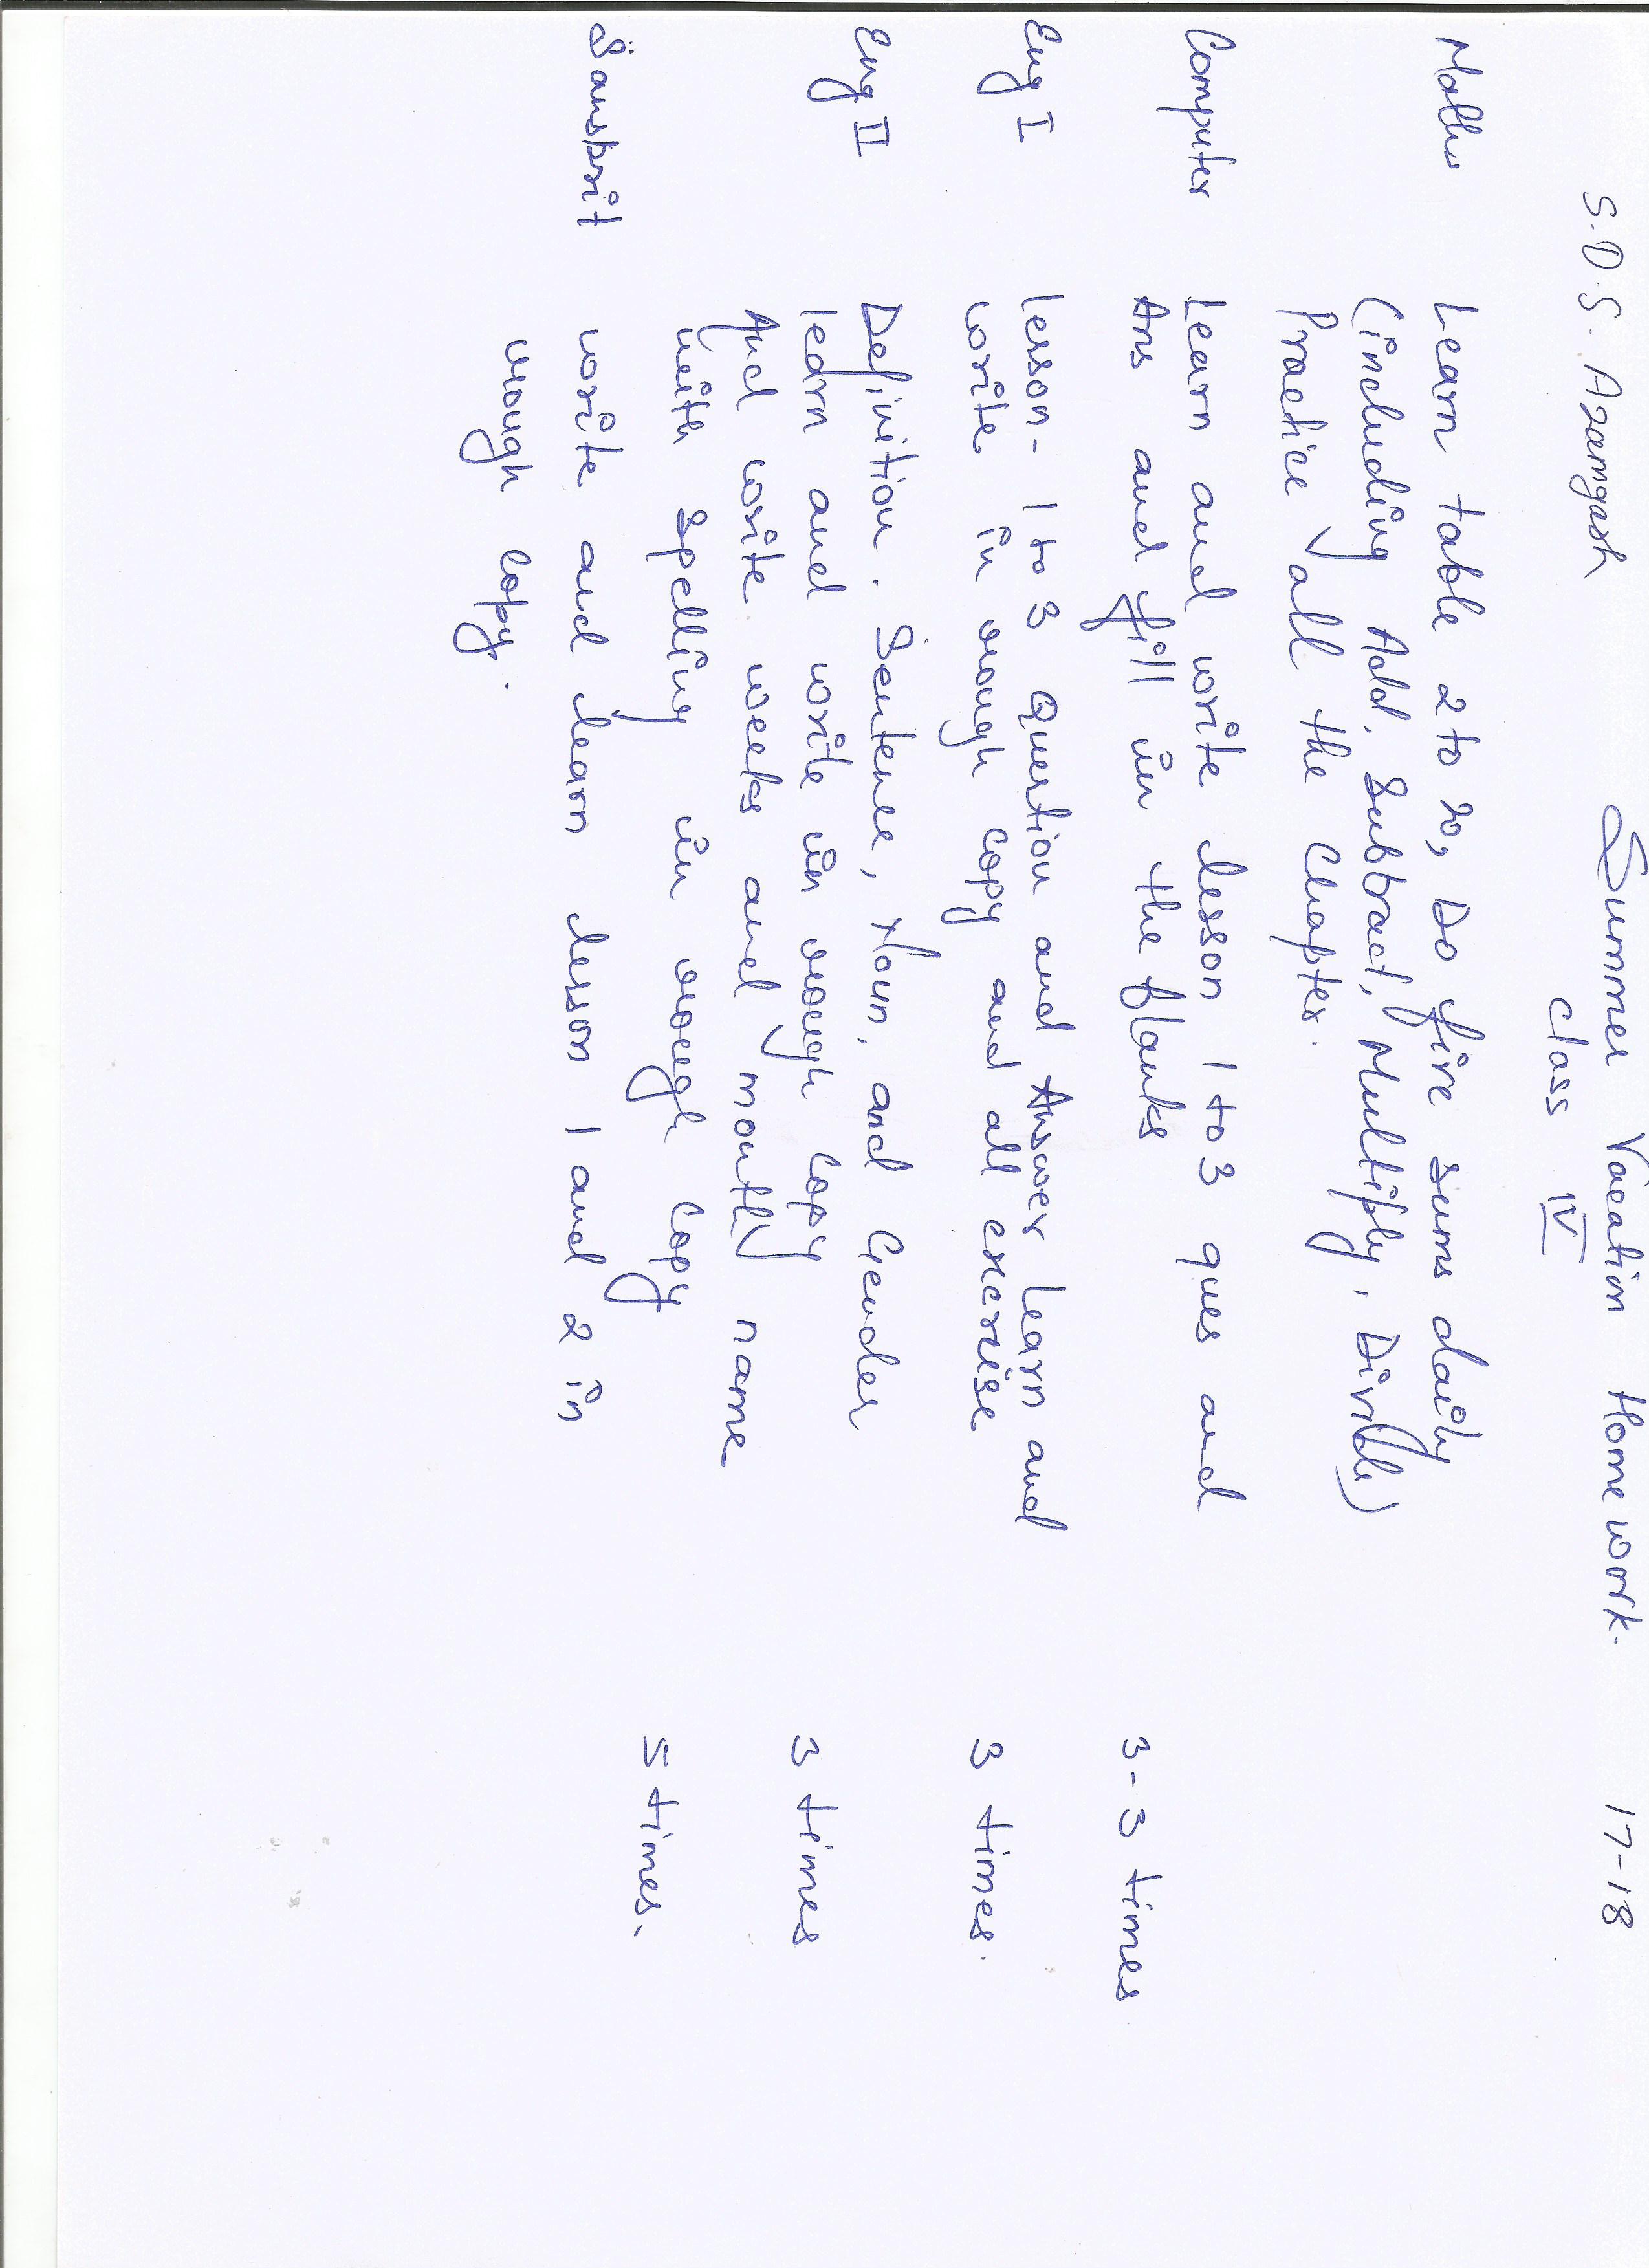 S.D.S. Azamgarh Summer Vacation Home work. 17-18
class IV
Maths Learn table 2 to 20, Do five sums daily
(including Add, Subtract, Multiply, Divide)
Practice all the Chapter.
Computer Learn and write lesson 1 to 3 ques and
Ans and fill in the blanks 3-3 times
Eng I lesson- 1 to 3 Question and Answer Learn and
write in rough copy and all exercise 3 times.
Eng II Definition. Sentence, Noun, and Gender
learn and write in rough copy 3 times
And write weeks and month name
with spelling in rough copy 5 times.
Sanskrit write and learn lesson 1 and 2 in
rough copy.